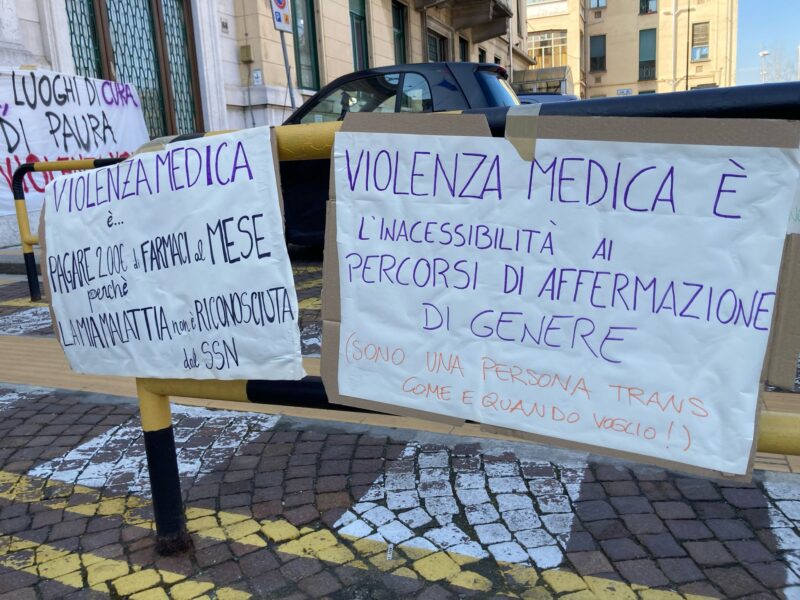 LUOGHI DI CURA
DI PAURA
VIOLENZA MEDICA
è...
PAGARE 200€ di FARMACI al MESE
perchè
LA MIA MALATTIA non è RICONOSCIUTA
dal SSN
VIOLENZA MEDICA È
L'INACESSIBILITÀ AI
PERCORSI DI AFFERMAZIONE
DI GENERE
(SONO UNA PERSONA TRANS
COME E QUANDO VOGLIO!)